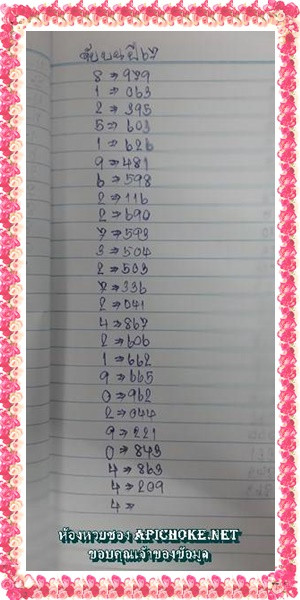 8 → 979
1 → 063
2 → 395
5 → 603
1 → 626
9 → 481
6 → 598
2 → 116
2 → 690
7 → 593
3 → 504
2 → 503
7 → 336
2 → 041
4 → 867
2 → 606
1 → 662
9 → 665
0 → 962
2 → 044
9 → 221
0 → 843
4 → 863
4 → 209
4 →
ห้องหวยซอง APICHOKE.NET
ขอบคุณเจ้าของข้อมูล